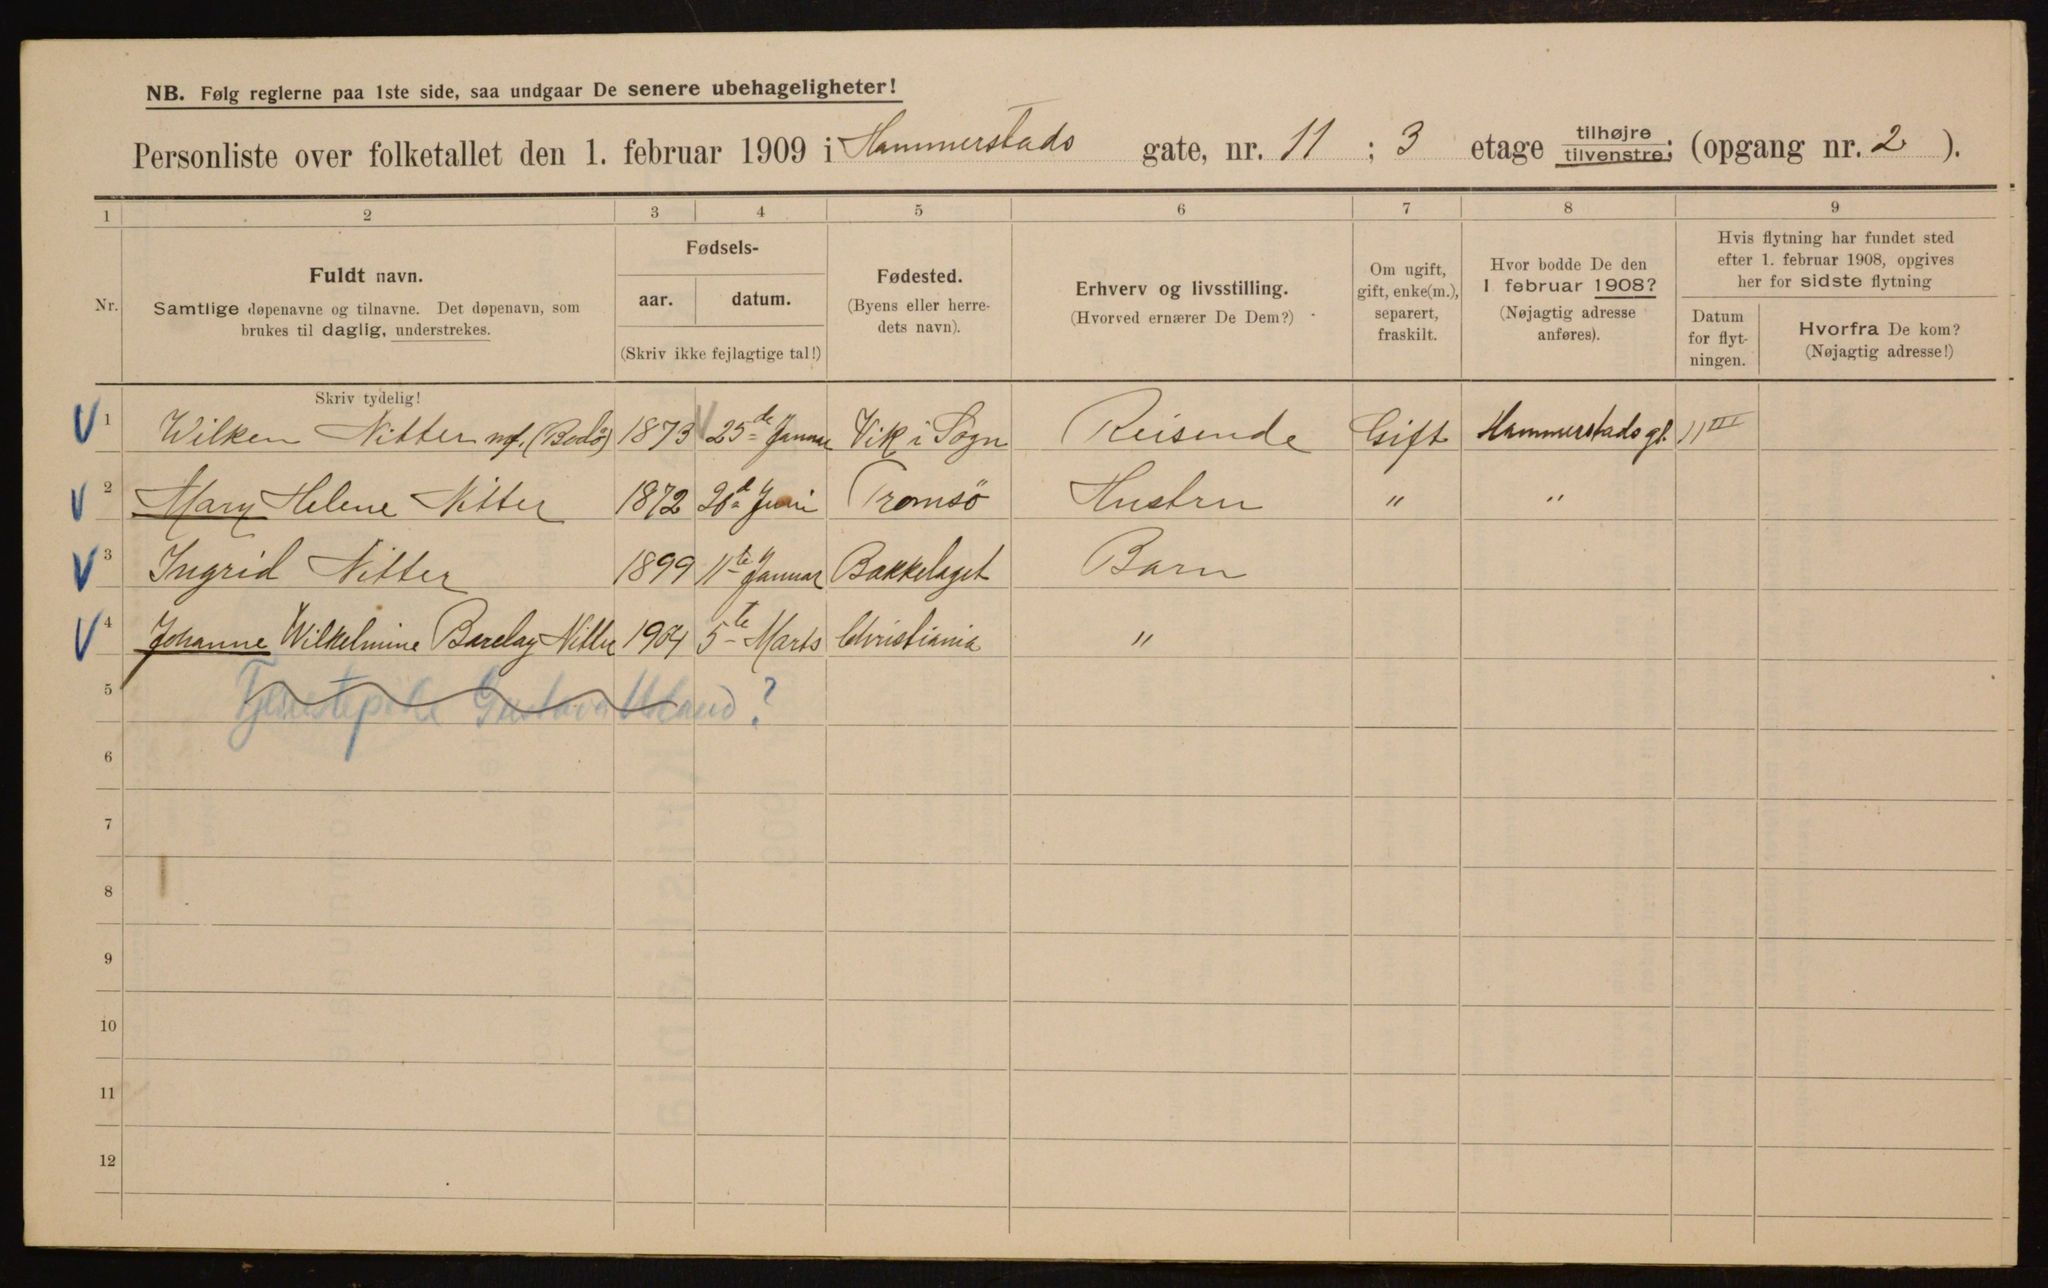 NB. Følg reglerne paa 1ste side, saa undgaar De senere ubehageligheter!
Personliste over folketallet den 1. februar 1909 i Hammerstads gate, nr. 11 ; 3 etage tilhøjre tilvenstre; (opgang nr. 2 ).
1 2 3 4 5 6 7 8 9
Nr.
Fuldt navn.
Samtlige døpenavne og tilnavne. Det døpenavn, som
brukes til daglig, understrekes.
Fødsels-
aar. datum.
(Skriv ikke fejlagtige tal!)
Fødested.
(Byens eller herre-
dets navn).
Erhverv og livsstilling.
(Hvorved ernærer De Dem?)
Om ugift,
gift, enke(m.),
separert,
fraskilt.
Hvor bodde De den
1 februar 1908?
(Nøjagtig adresse
anføres).
Hvis flytning har fundet sted
efter 1. februar 1908, opgives
her for sidste flytning
Datum
for flyt-
ningen.
Hvorfra De kom?
(Nøjagtig adresse!)
Skriv tydelig!
1 Wilken Nitter (Bodö) 1873 25de Januar Vik i Sogn Reisende Gift Hammerstads gt. 11 III
2 Mary Helene Nitter 1872 Juni Tromsö Hustru " "
3 Ingrid Nitter 1899 11te Januar Bækkelaget Barn
4 Johanne Wilhelmine Barclay Nitter 1904 5te Marts Christiania "
5 Tjenestepike Gustava ?
6
7
8
9
10
11
12